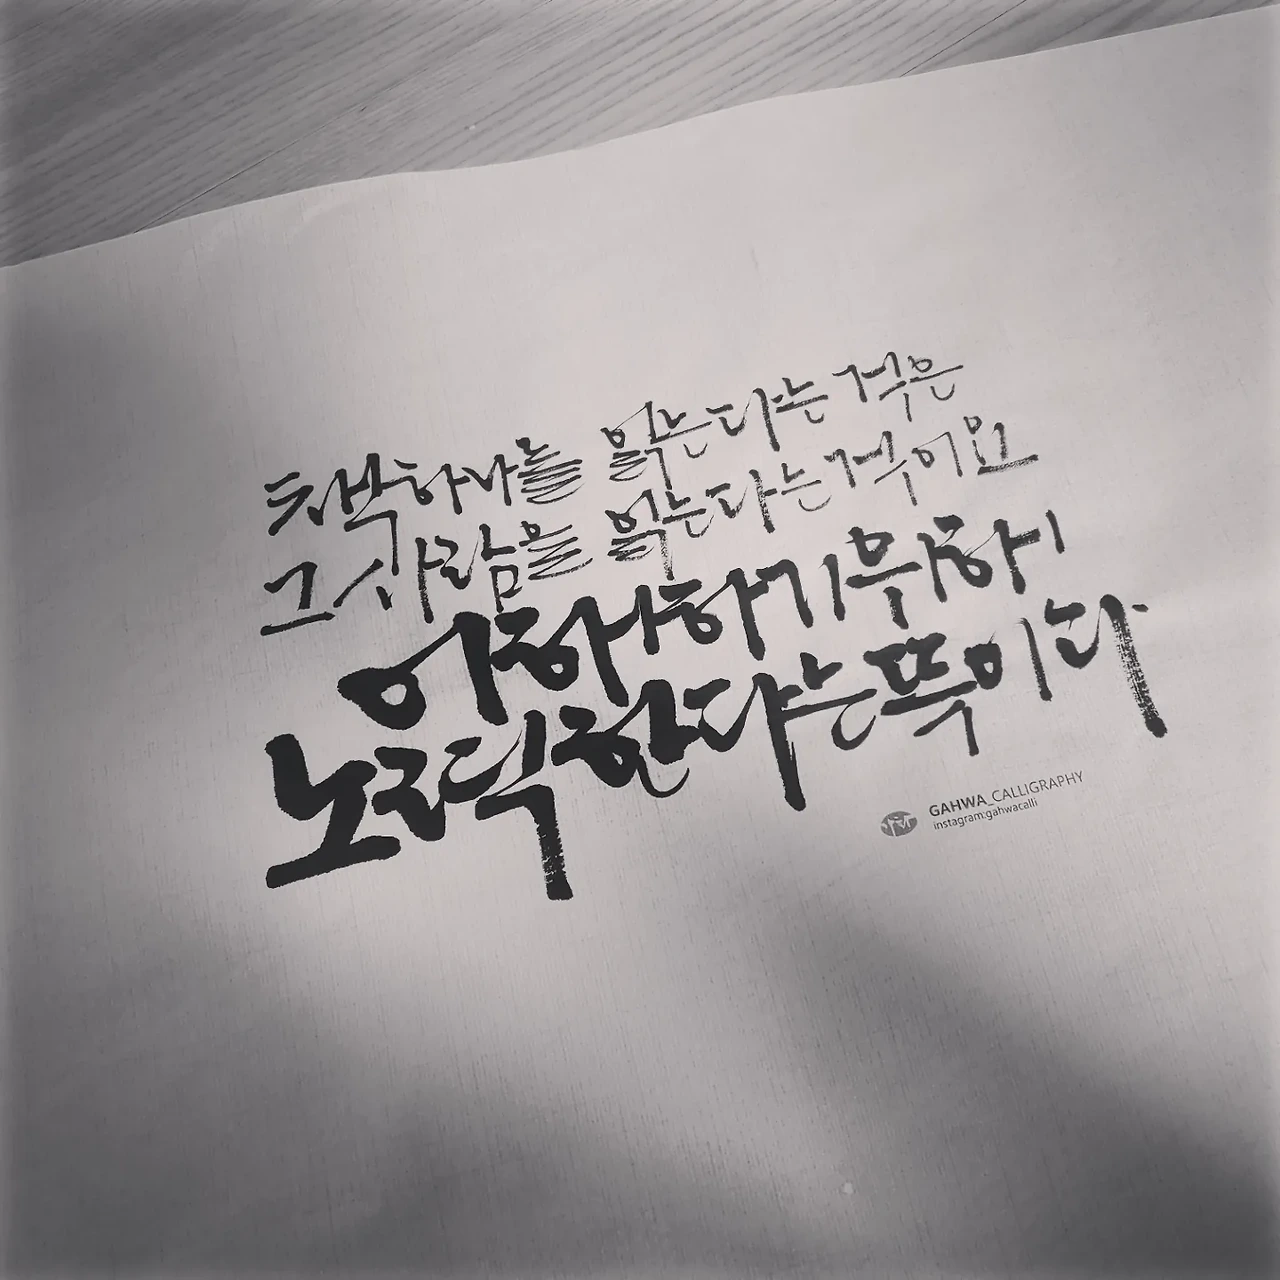 책 하나를 읽는다는 것은
그 사람을 읽는다는 것이요
이해하기 위하여
노력한다는 뜻이다
GAHWA_CALLIGRAPHY
instagram:gahwacalli